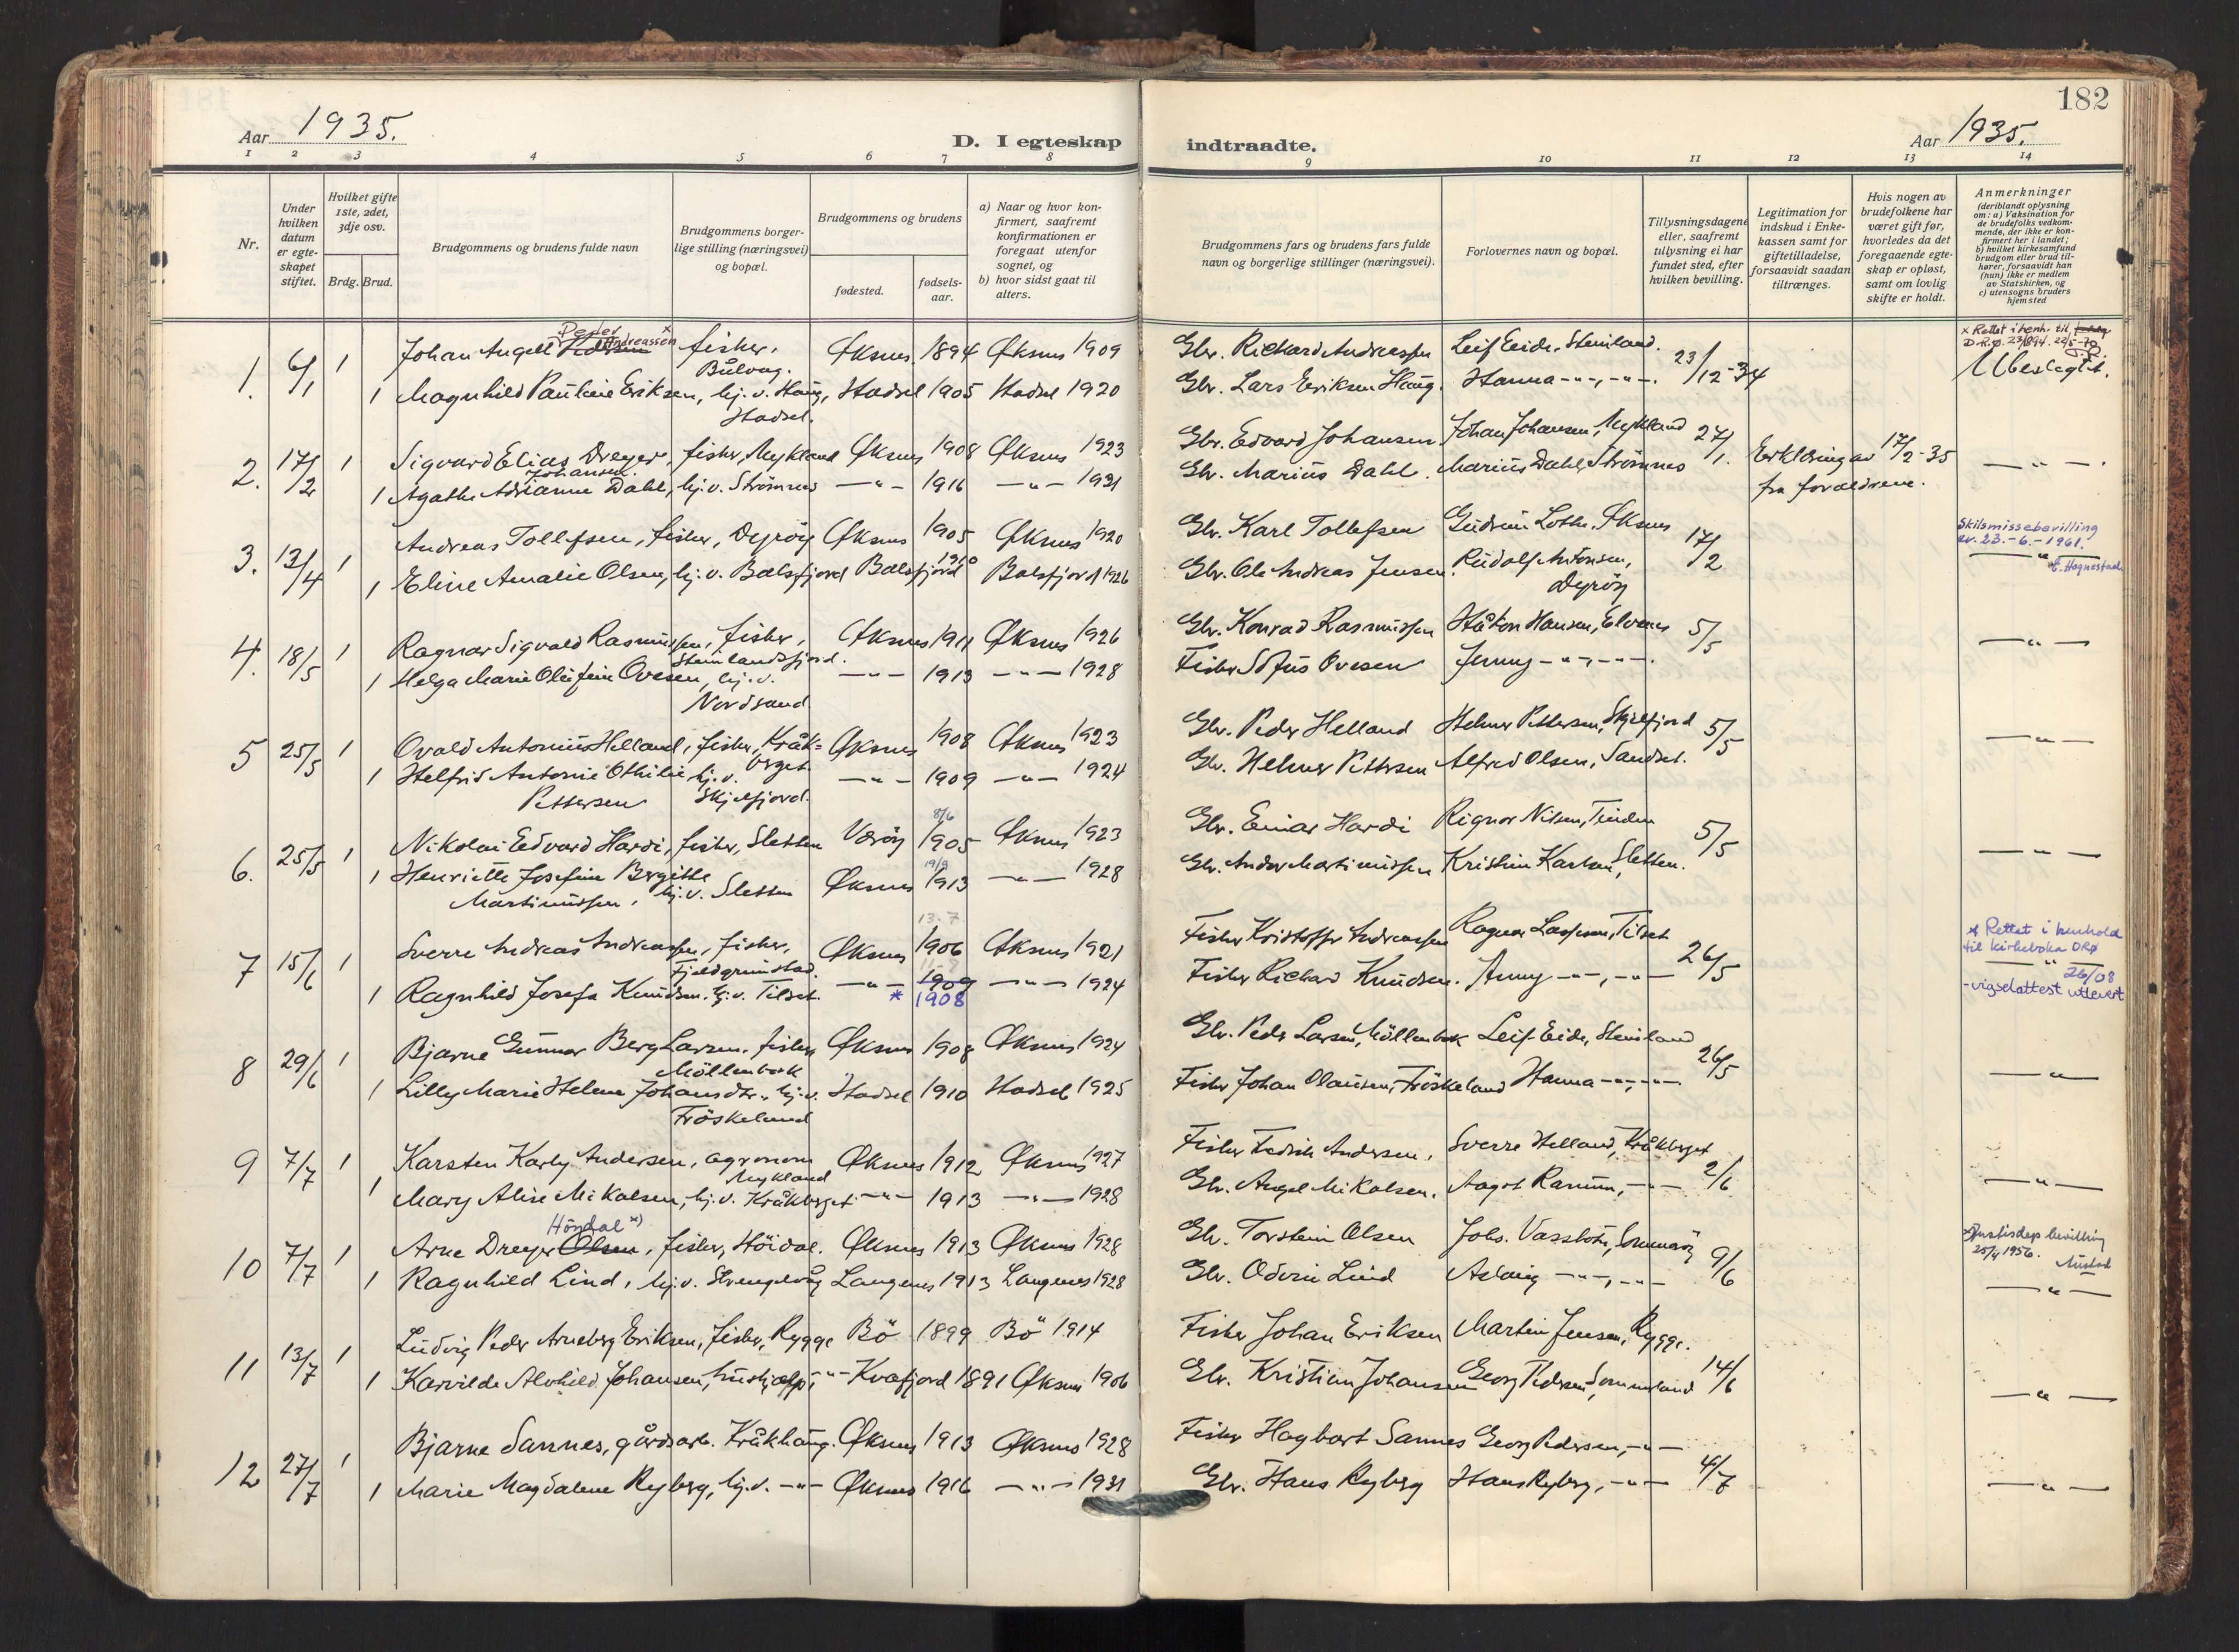 182
Aar 1935.
D. I egteskap
indtraadte.
Aar 1935.
1 2 3 4 5 6 7 8 9 10 11 12 13 14
Nr.
Under hvilken datum er egte-skapet stiftet.
Hvilket gifte 1ste, 2det, 3dje osv.
Brdg. Brud.
Brudgommens og brudens fulde navn
Brudgommens borger-lige stilling (næringsvei) og bopæl.
Brudgommens og brudens
fødested.
fødsels-aar.
a) Naar og hvor kon-firmert, saafremt konfirmationen er foregaat utenfor sognet, og
b) hvor sidst gaat til alters.
Brudgommens fars og brudens fars fulde navn og borgerlige stillinger (næringsvei).
Forlovernes navn og bopæl.
Tillysningsdagene eller, saafremt tillysning ei har fundet sted, efter hvilken bevilling.
Legitimation for indskud i Enke-kassen samt for giftetilladelse, forsaavidt saadan tiltrænges.
Hvis nogen av brudefolkene har været gift før, hvorledes da det foregaaende egte-skap er opløst, samt om lovlig skifte er holdt.
Anmerkninger (deriblandt oplysning om: a) Vaksination for de brudefolks vedkom-mende, der ikke er kon-firmert her i landet; b) hvilket kirkesamfund brudgom eller brud til-hører, forsaavidt han (hun) ikke er medlem av Statskirken, og c) utensogns bruders hjemsted
Peder Andreassen x
1. 6/1 1 Johan Angell Pedersen fisker, Bulvåg. Øksnes 1894 Øksnes 1909 Gbr. Rickard Andreassen Leif Eide, Steinland. 23/12-34
x Rettet i henh. til
D.R.Ø. 23/1894. 22/5-70
Ubeslegtet.
1 Magnhild Pauline Eriksen, hj. v. Haug, Hadsel. Hadsel 1905 Hadsel 1920 Gbr. Lars Eriksen Haug. Hanna -"-, -"-.
2. 17/2 1 Sigvard Elias Dreyer Johansen, fisker, Nykland Øksnes 1908 Øksnes 1923 Gbr. Edvard Johansen. Johan Johansen, Nykland 27/1. Erklæring av 17/2-35 fra forældrene. -"-.
1 Agathe Adrianne Dahl, hj. v. Strömnes -"- 1916 -"- 1931 Gbr. Marius Dahl. Marius Dahl, Strömnes
3. 13/4 1 Andreas Tollefsen, fisker, Dyröy Øksnes 1905 Øksnes 1920 Gbr. Karl Tollefsen Gudrun Lothe, Øksnes 17/2
Skilsmissebevilling
av. 23.-6.-1961.
-"- E. Hognestad
1 Eline Amalie Olsen, hj. v. Balsfjord Balsfjord 1910 Balsfjord 1926 Gbr. Ole Andreas Jensen. Rudolf Antonsen, Dyröy
4. 18/5 1 Ragnar Sigvald Rasmussen, fisker, Steinlandsfjord. Øksnes 1911 Øksnes 1926 Gbr. Konrad Rasmussen Håkon Hansen, Elvenes 5/5 -"-
1 Helga Marie Olufine Ovesen, hj. v. Nordsand. -"- 1913 -"- 1928 Fisker Sofus Ovesen Jenny -"-, -"-.
5 25/5 1 Ovald Antonius Helland, fisker, Kråkberget. Øksnes 1908 Øksnes 1923 Gbr. Peder Helland Helmer Pettersen, Skjelfjord 5/5 -"-
1 Helfrid Antonie Othilie Pettersen hj. v. Skjelfjord. -"- 1909 -"- 1924 Gbr. Helmer Pettersen Alfred Olsen, Sandset.
6. 25/5 1 Nikolai Edvard Hardi, fisker, Sletten Værøy 8/6 1905 Øksnes 1923 Gbr. Einar Hardi Rignor Nilsen, Tinden 5/5 -"-
1 Henriette Josefine Bergitte Martinussen, hj. v. Sletten Øksnes 19/9 1913 -"- 1928 Gbr. Ander Martinussen Kristian Karlsen, Sletten.
7 15/6 1 Sverre Andreas Andreassen, fisker, Fjeldgrunstad. Øksnes 13.7 1906 Øksnes 1921 Fisker Kristoffer Andreassen Ragnar Lassesen, Tilset 26/5
* Rettet i henhold
til kirkeboka DRØ
-"- 26/08
- vigselattest utlevert
1 Ragnhild Josefa Knudsen, hj. v. Tilset. -"- 1909 * 1908 -"- 1924 Fisker Richard Knudsen. Anny -"-, -"-
8 29/6 1 Bjarne Gunnar Berg Larsen, fisker Möllenbok Øksnes 1908 Øksnes 1924 Gbr. Peder Larsen, Möllenbok Leif Eide, Steinland 26/5 -"-
1 Lilly Marie Helene Johansdtr., hj. v. Fröskeland Hadsel 1910 Hadsel 1925 Fisker Johan Olausen, Fröskeland Hanna -"-, -"-.
9 7/7 1 Karsten Karly Andersen, agronom Nykland Øksnes 1912 Øksnes 1927 Fisker Fedrik Andersen. Sverre Helland, Kråkberget 2/6 -"-
1 Mary Alise Mikalsen, hj. v. Kråkberget. -"- 1913 -"- 1928 Gbr. Angel Mikalsen. Aagot Ranum, -"-
Höydal x)
10 7/7 1 Arne Dreyer Olsen, fisker, Höidal. Øksnes 1913 Øksnes 1928 Gbr. Torstein Olsen Johs. Vassbotn, Sommaröy 9/6
x) Justisdep bevilling
25/4 1956. Austad
-"-
1 Ragnhild Lind, hj. v. Strengelvåg Langenes 1913 Langenes 1928 Gbr. Oderin Lind Aslaug -"-, -"-
11 13/7 1 Ludvig Peder Arneberg Eriksen, fisker, Rygge Bö 1899 Bö 1914 Fisker Johan Eriksen Martin Jensen, Rygge. 14/6 -"-
1 Karvilde Alvhild Johansen, hushjælp, -"- Kvæfjord 1891 Øksnes 1906 Gbr. Kristian Johansen Georg Pedersen, Sommarland
12 27/7 1 Bjarne Sannes, gårdsarb. Kråkhaug. Øksnes 1913 Øksnes 1928 Fisker Hagbart Sannes Georg Pedersen, -"- 4/7 -"-
1 Marie Magdalene Ryberg, hj. v. -"- Øksnes 1916 -"- 1931 Gbr. Hans Ryberg Hans Ryberg, -"-